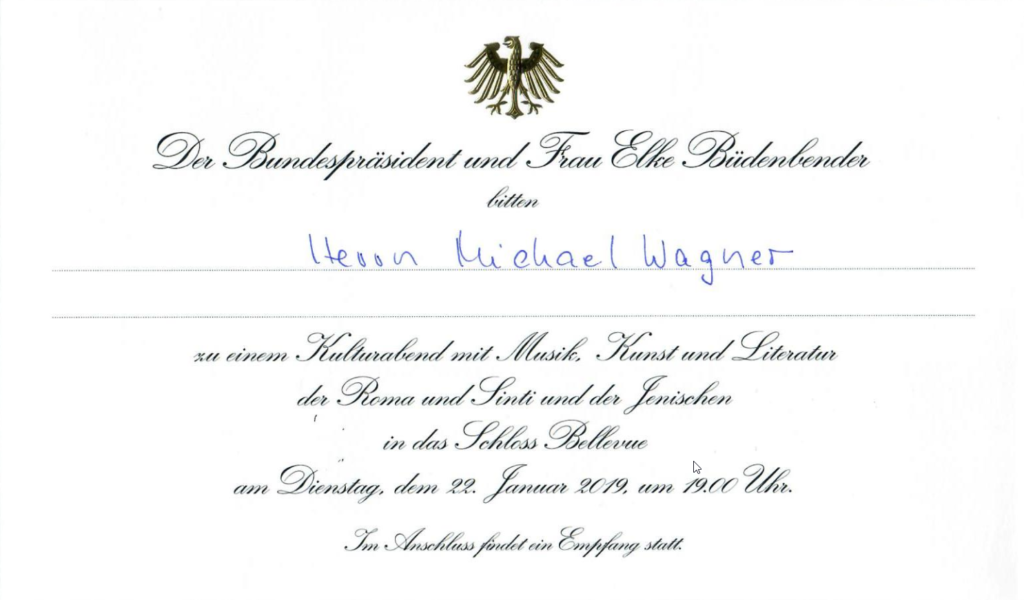 Der Bundespräsident und Frau Elke Büdenbender
bitten
Herrn Michael Wagner
zu einem Kulturabend mit Musik, Kunst und Literatur
der Roma und Sinti und der Jenischen
in das Schloss Bellevue
am Dienstag, dem 22. Januar 2019, um 19.00 Uhr.
Im Anschluss findet ein Empfang statt.